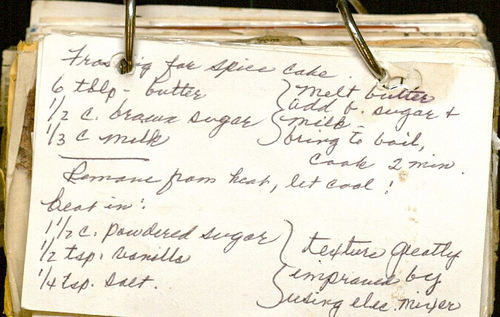 Frosting for spice cake.
6 tblp - butter
1/2 c. brown sugar
1/3 c milk
} melt butter
add b. sugar +
milk -
bring to boil,
cook 2 min.
Remove from heat, let cool!
beat in:
1 1/2 c. powdered sugar
1/2 tsp. vanilla
1/4 tsp. salt.
} texture greatly
emproved by
using elec. mixer